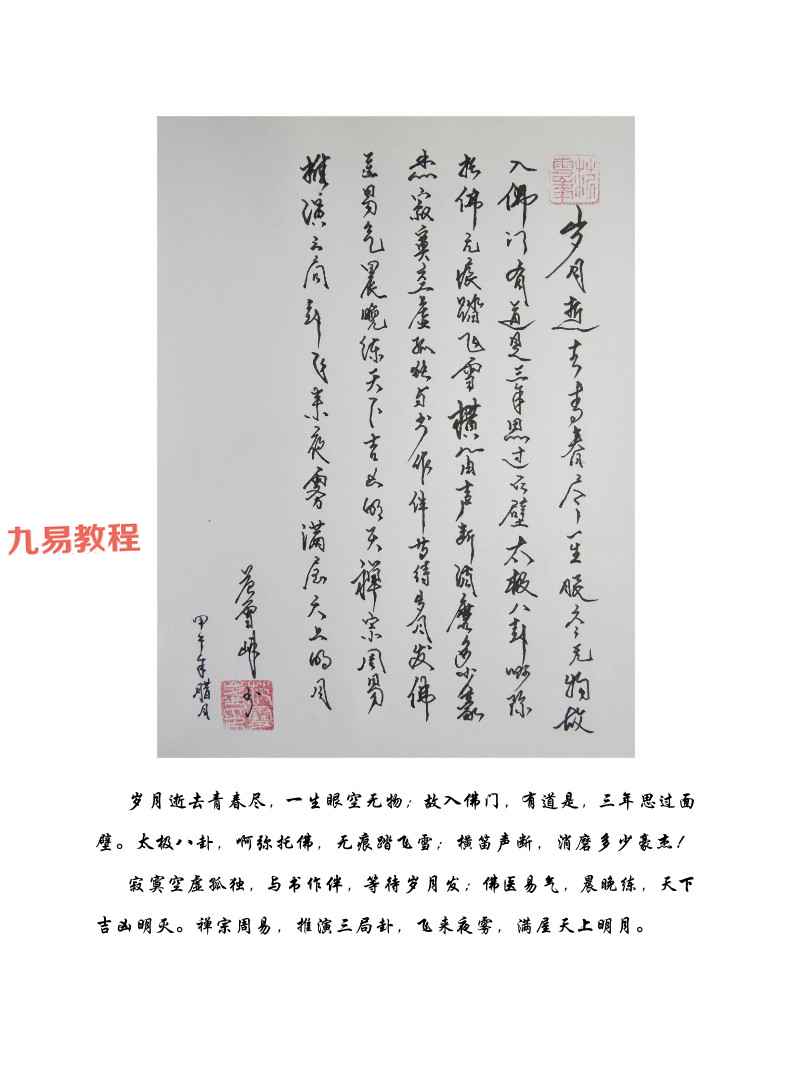 岁月逝去青春尽一生眼空无物故
入佛门有道是三年思过面壁太极八卦啊弥
托佛无痕踏飞雪横笛声断消磨多少豪
杰寂寞空虚孤独与书作伴等待岁月发佛
医易气晨晚练天下吉凶明灭禅宗周易
推演三局卦飞来夜雾满屋天上明月
甲午年腊月
九易教程
岁月逝去青春尽，一生眼空无物；故入佛门，有道是，三年思过面
壁。太极八卦，啊弥托佛，无痕踏飞雪；横笛声断，消磨多少豪杰！
寂寞空虚孤独，与书作伴，等待岁月发；佛医易气，晨晚练，天下
吉凶明灭。禅宗周易，推演三局卦，飞来夜雾，满屋天上明月。